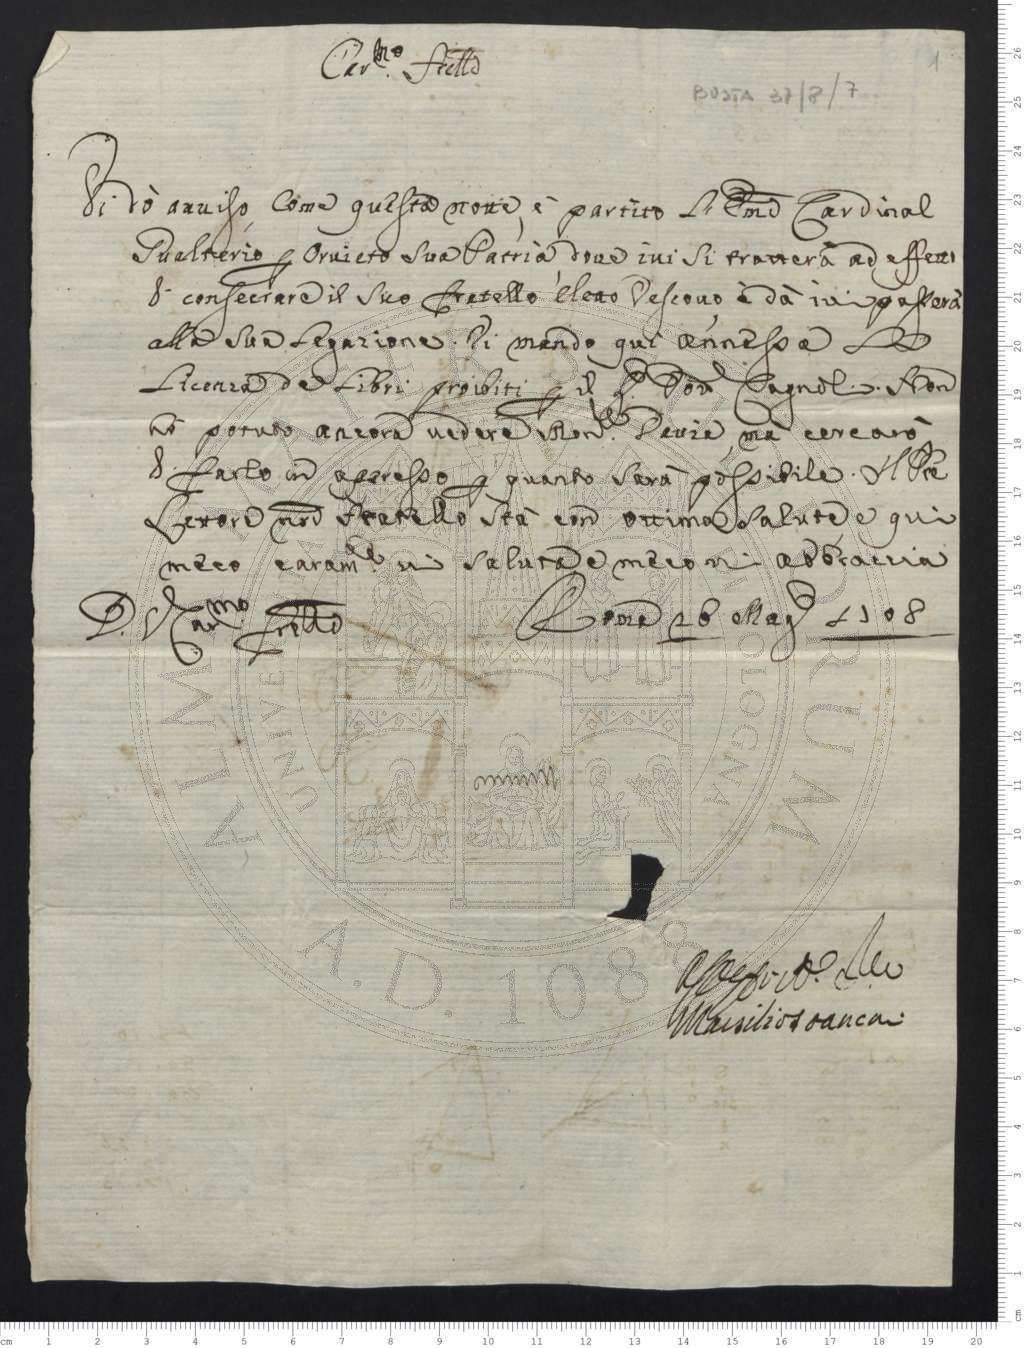 Car.mo Fr͞ello
1
BUSTA 37/8/7
Vi dò avviso Come questa notte è partito L' Em͞o Cardinal
Gualterio p Orvieto sua Patria dove ivi si tratterà ad effetto
di consecrare il suo Fratello eletto Vescovo è dà ivi passerà
alla sua Legazione. Vi mando qui annessa La
Licenza de Libri proibiti p il S.r Dott. Non
hò potuto ancora vedere Mon. Pavia, mà cercarò
di farlo in appresso p quanto sarà possibile. Il
Lettore n͞ro Fratello stà con ottima salute e qui
meco caram.te vi saluta e meco vi abbraccia
D. V. Car.mo Fr͞ello
Roma 26 Mag.o 1708
Marsilio
ALMA
UNIVE
BOLOGNA
A.D. 1088
cm 1 2 3 4 5 6 7 8 9 10 11 12 13 14 15 16 17 18 19 20
cm 1 2 3 4 5 6 7 8 9 10 11 12 13 14 15 16 17 18 19 20 21 22 23 24 25 26